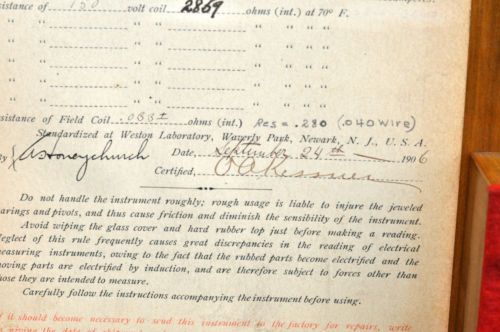 sistance of 150 volt coil 2869 ohms (int.) at 70° F.
" " " " " "
" " " " " "
" " " " " "
" " " " " "
sistance of Field Coil .083± ohms (int.) Res = .280 (.040 wire)
Standardized at Weston Laboratory, Waverly Park, Newark, N. J., U. S. A.
y AStoneychurch Date, September 24th 1906
Certified,
Do not handle the instrument roughly; rough usage is liable to injure the jeweled
arings and pivots, and thus cause friction and diminish the sensibility of the instrument.
Avoid wiping the glass cover and hard rubber top just before making a reading.
Neglect of this rule frequently causes great discrepancies in the reading of electrical
measuring instruments, owing to the fact that the rubbed parts become electrified and the
oving parts are electrified by induction, and are therefore subject to forces other than
hose they are intended to measure.
Carefully follow the instructions accompanying the instrument before using.
f it should become necessary to send this instrument to the factory for repairs, write